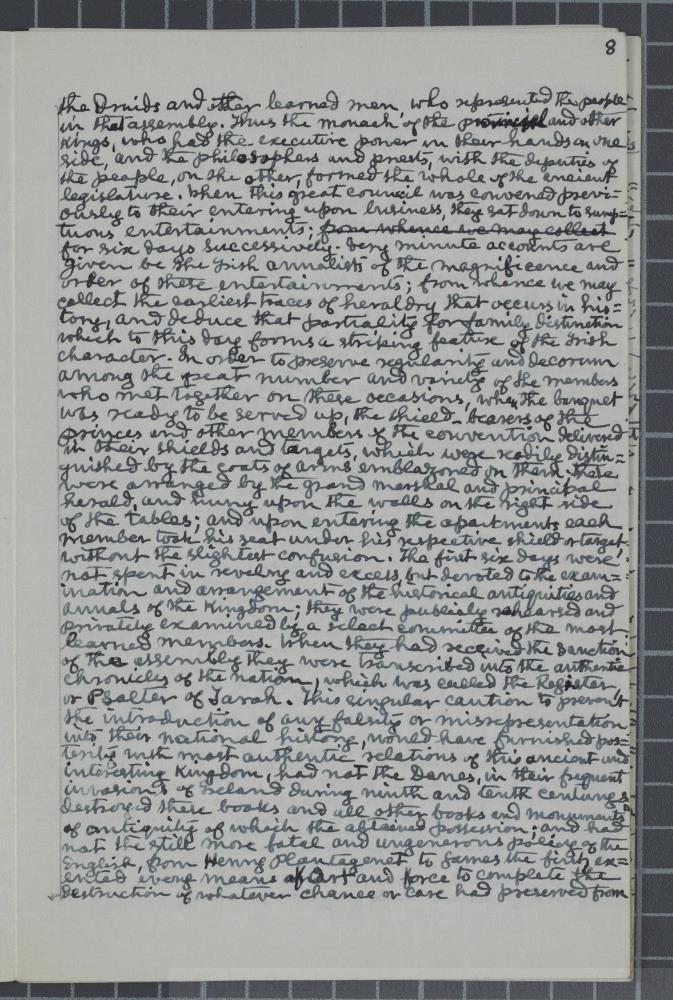 8
the Druids and other learned men, who represented the people
in that assembly. Thus the monach of the and other
Kings, who had the executive power in their hands on one
side, and the philosophers and priests, with the deputies of
the people, on the other, formed the whole of the ancient
legislature. When this great council was convened previ=
ously to their entering upon business, they sat down to sump=
tuous entertainments; from whence we may collect
for six days successively. Very minute accounts are
given be the Irish annalists of the magnificence and
order of these entertainments; from whence we may
collect the earliest traces of heraldry that occurs in his=
tory, and deduce that partiality for family distination
which to this day fooms a striking feature of the Irish
character. In order to preserve regularity and decorum
among the great number and variety of the members
who met together on these occasions, when the banquet
was ready to be served up, the shield-bearers of the
princes and other members of the convention delivered
in their shields and targets, which were readily distin=
guished by the coats of arms emblazoned on them. These
were arranged by the grand marshal and principal
herald, and hung upon the walls on the right side
of the tables; and upon entering the apartments each
member took his seat under his respective shield or target
without the slightest confusion. The first six days were
not spent in revelry and excess, but devoted to the exam=
ination and arrangement of the historical antiquities and
annals of the Kingdom; they were publicly rehearsed and
privately examined by a select committee of the most
learned members. When they had received the sanction
of the assembly they were transcribed into the authentic
chronicles of the nation, which was called the Register
or Psalter of Tarah. This singular caution to prevent
the introduction of any falsity or missrepresentation
into their national history, would have furnished pos=
terity with most authentic relations of this ancient and
interesting Kingdom, had not the Danes, in their frequent
invasions of Ireland during ninth and tenth centurys
destroyed these books and all other books and monuments
of antiquity of which the abtained possession; and had
not the still more fatal and ungenerous policy of the
English, from Henry Plantagenet to James the first, ex=
erted every means of art and force to complete the
destruction of whatever chance or care had preserved from